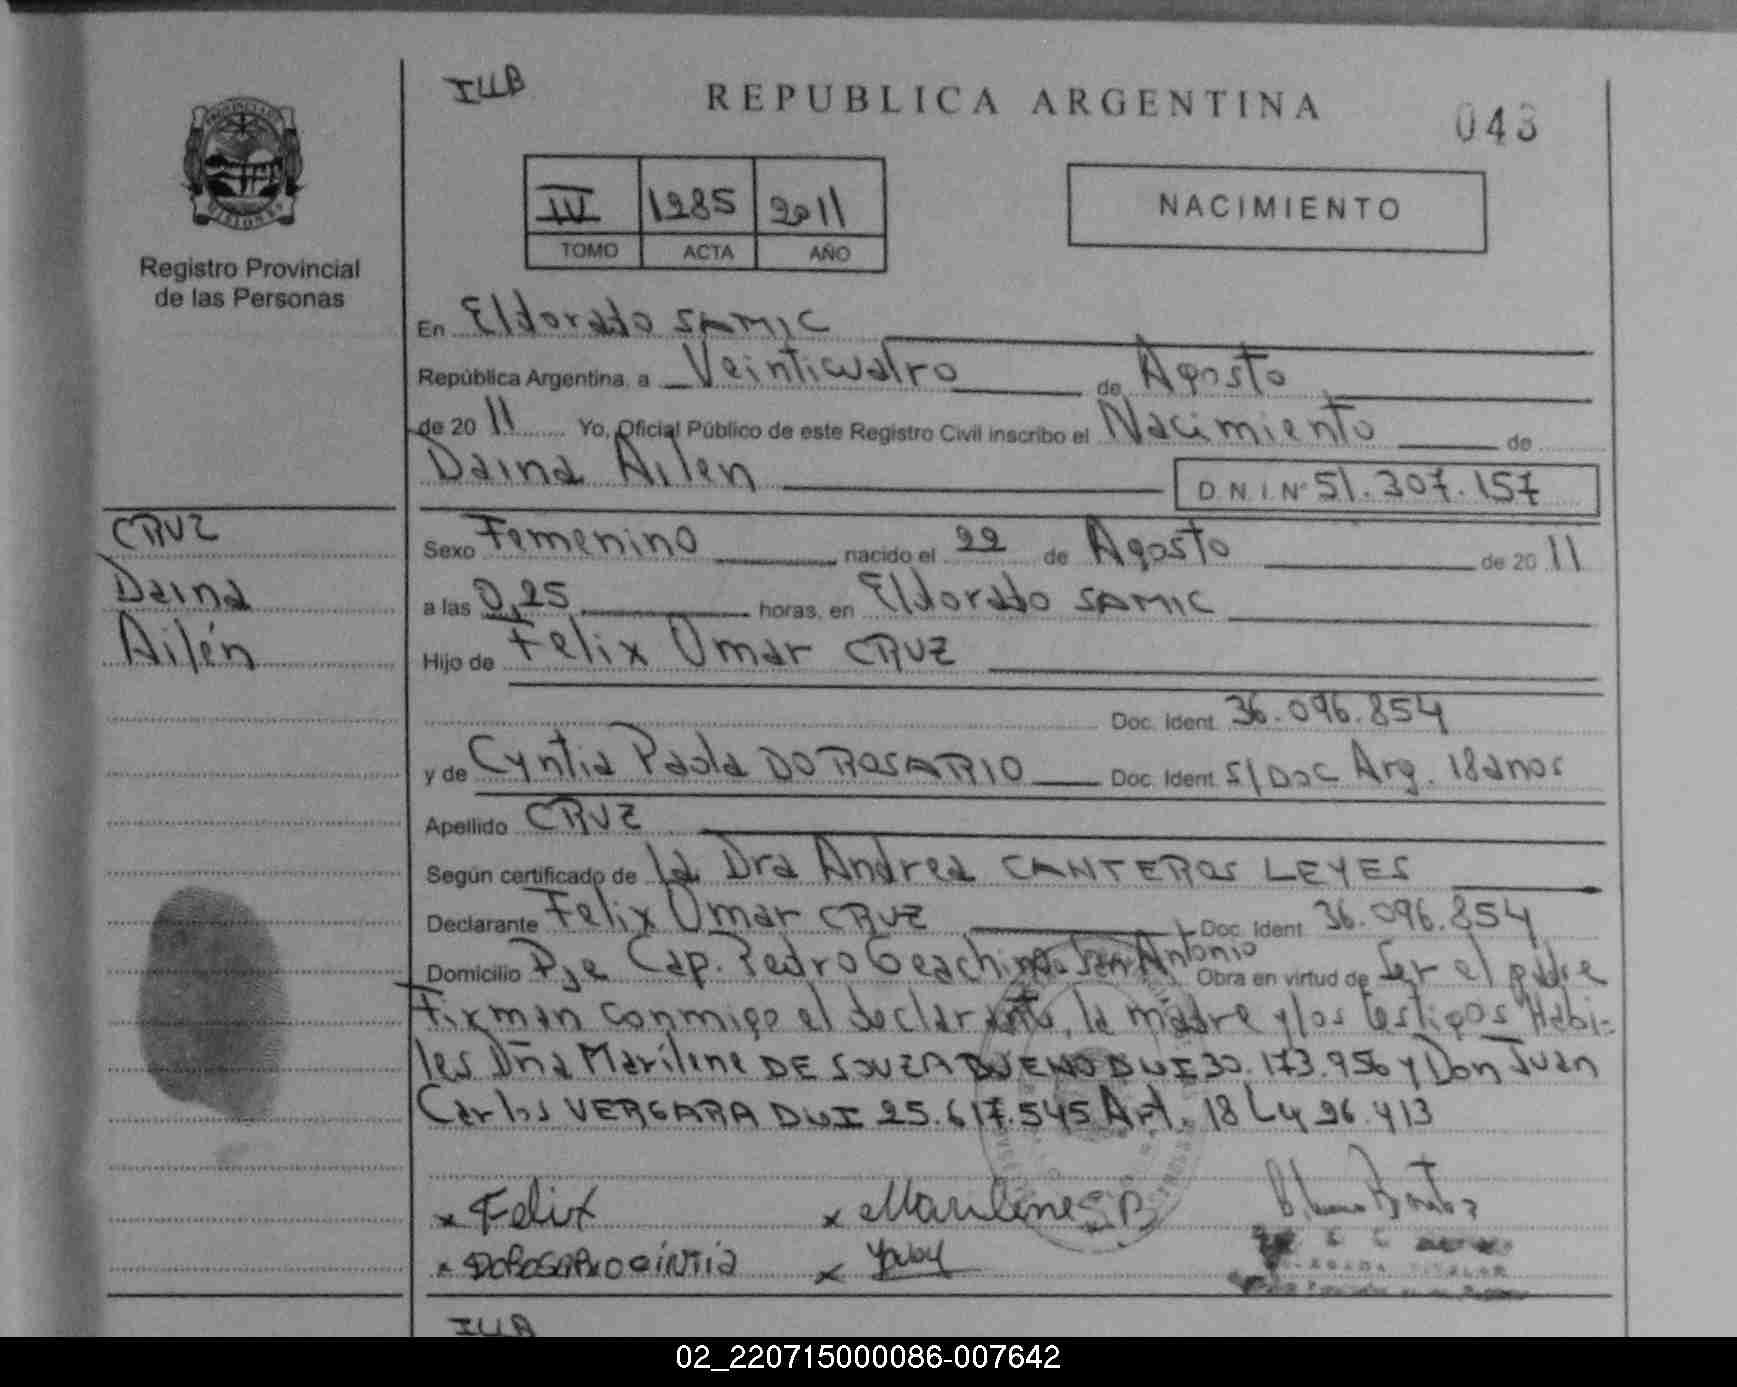 IUB
REPUBLICA ARGENTINA
043
IV 1285 2011
TOMO ACTA AÑO
NACIMIENTO
Registro Provincial
de las Personas
CRUZ
Daina
Ailén
En Eldorado SAMIC
República Argentina, a Veinticuatro de Agosto
de 2011 Yo, Oficial Público de este Registro Civil inscribo el Nacimiento de
Daina Ailen D.N.I.Nº 51.307.157
Sexo Femenino nacido el 22 de Agosto de 2011
a las 0,25 horas, en Eldorado SAMIC
Hijo de Felix Omar CRUZ
Doc. Ident. 36.096.854
y de Cyntia Paola DO ROSARIO Doc. Ident. S/Doc Arg. 18 anos
Apellido CRUZ
Según certificado de la Dra Andrea CANTEROS LEYES
Declarante Felix Omar CRUZ Doc. Ident. 36.096.854
Domicilio Pje Cap. Pedro Geachino San Antonio Obra en virtud de Ser el padre
Firman conmigo el declarante, la madre y los testigos Habi-
les Dña Marilene DE SOUZA BUENO DUI 30.173.956 y Don Juan
Carlos VERGARA DUI 25.617.545 Art. 18 Ly 26.413
x Felix x Marilene S B
x DOROSARIO CINTIA x
TITULAR
IUB
02_220715000086-007642